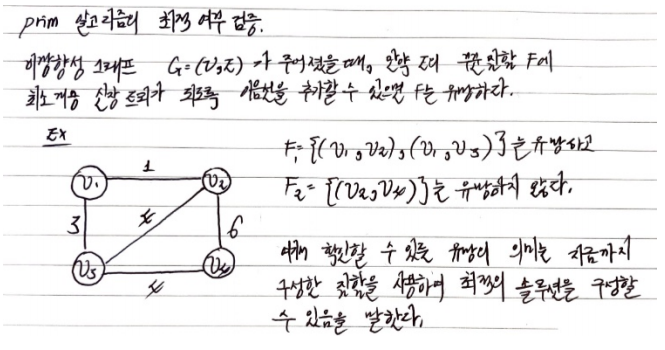 prim 알고리즘의 최적 여부 검증.
비방향성 그래프 G=(V,E) 가 주어졌을 때, 만약 E의 부분집합 F에
최소비용 신장 트리가 되도록 이음선을 추가할 수 있으면 F는 유망하다.
Ex
F₁ = {(v₁, v₂), (v₁, v₃)}는 유망하고
F₂ = {(v₂, v₄)}는 유망하지 않다.
v₁ 1 v₂
3 4 6
v₃ 4 v₄
확인할 수 있는 유망의 의미는 지금까지
구성한 집합을 사용하여 최적의 솔루션을 구성할
수 있음을 말한다.